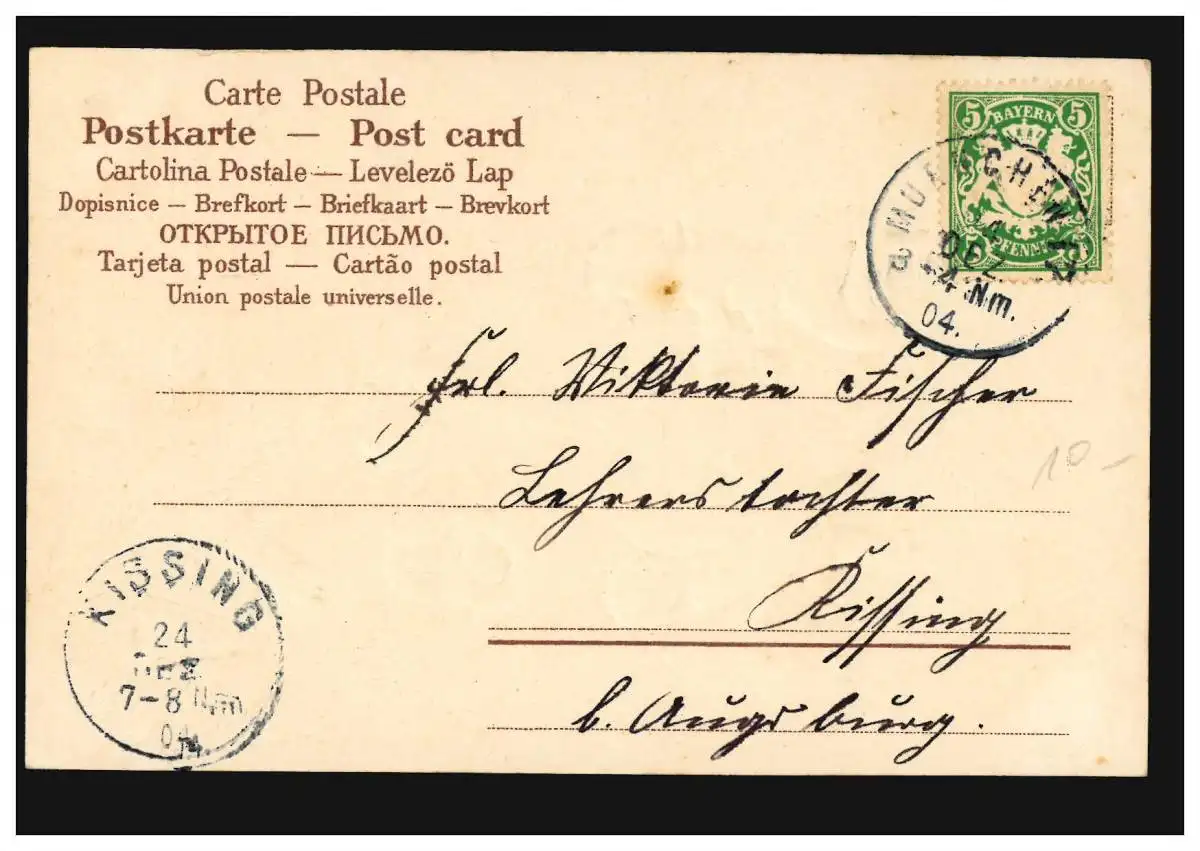 Carte Postale
Postkarte — Post card
Cartolina Postale — Levelezö Lap
Dopisnice — Brefkort — Briefkaart — Brevkort
ОТКРЫТОЕ ПИСЬМО.
Tarjeta postal — Cartão postal
Union postale universelle.
5 BAYERN 5
5 PFENNIG 5
DEZ
4 Nm.
04.
Frl. Wiktorin Fischer
Lehrerstochter
10 —
Kissing
b. Augsburg.
KISSING
24
DEZ
7-8 Nm
04